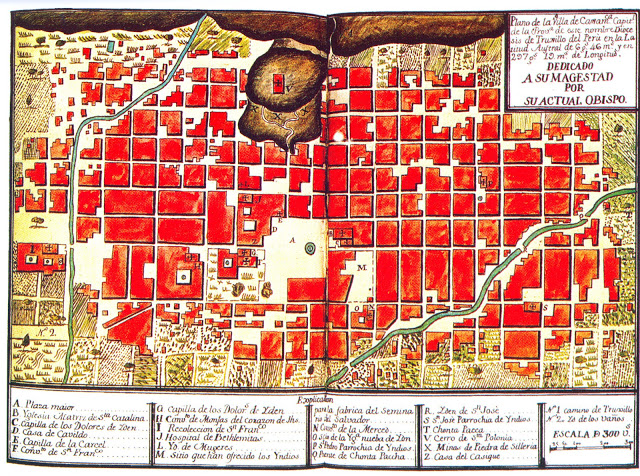 Plano de la Villa de Caxam.ª Capit.l
de la Prov.ª de este nombre Dioce
sis de Truxillo del Perú en la La
titud Austral de 6 g.s 46 m.s y en
297 g.s 19 m.s de Longitud.
DEDICADO
A SU MAGESTAD
POR
SU ACTUAL OBISPO.
V
E
D
A
M
O
S
N.º 2
Explication
A Plaza maior
B Yglesia Matris de S.ta Catalina
C Capilla de los Dolores de Iden
D Casa de Cavildo
E Capilla de la Carcel
F Conv.to de S.n Fran.co
G Capilla de los Dolor.s de Iden
H Conv.to de Monjas del Corazon de Jhs
I Recoleccion de S.n Fran.co
J Hospital de Bethlemitas
L Yd. de Mugeres
M Sitio que han ofrecido los Yndios
para la fabrica del Semina
rio del Salvador
N Conv.to de la Merced
O de la nueba de
P Parrochia de Yndios
Q Pente de Chonta Paccha
R Iden de S.n José
S S.n José Parrochia de Yndios
T Chonta Pacca
V Cerro de S.ta Polonia
X Minas de Piedra de Silleria
Z Casa del Casique
N.º 1 camino de Truxillo
N.º 2 Yd. de los Vaños
ESCALA D 300